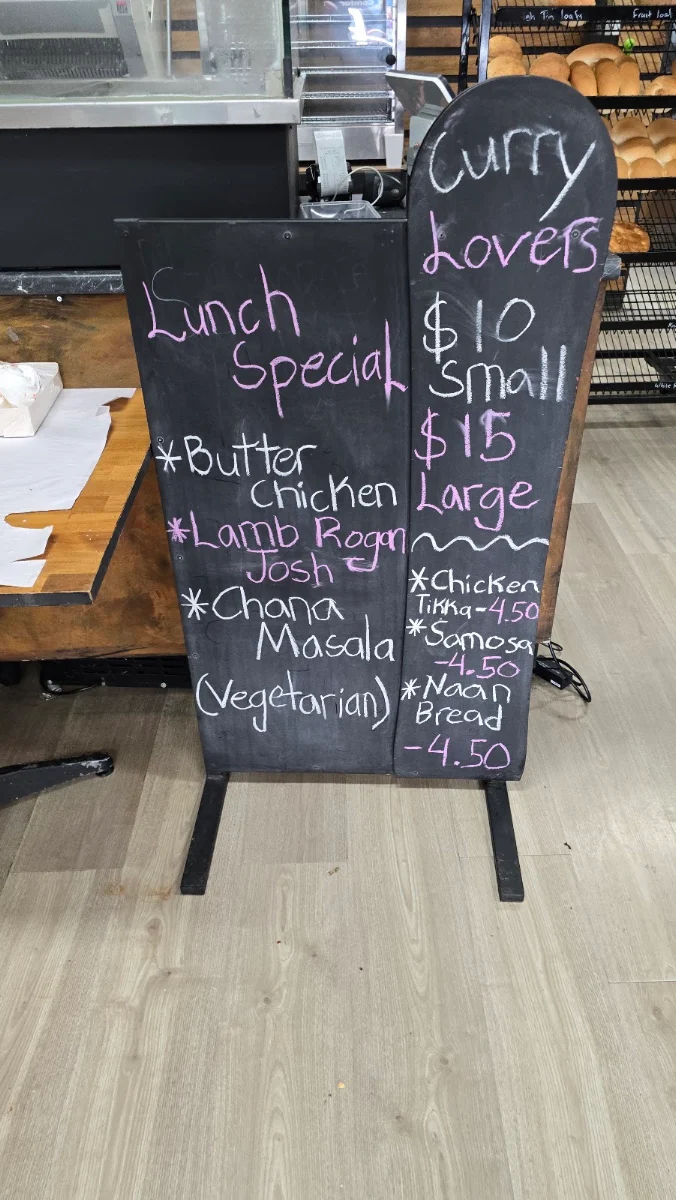 Lunch
Special
*Butter
Chicken
*Lamb Rogan
Josh
*Chana
Masala
(Vegetarian)
Curry
Lovers
$10
Small
$15
Large
*Chicken
Tikka-4.50
*Samosa
-4.50
*Naan
Bread
-4.50
Tin loafs
Fruit loaf